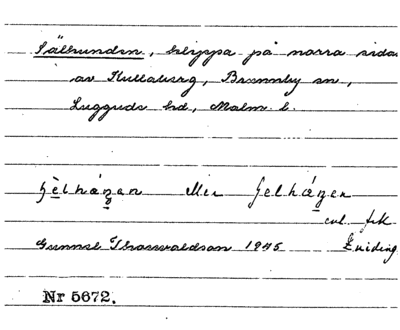 Sälhunden, klippa på norra sidan
av Kullaberg, Brunnby sn,
Luggude hd, Malm. l.
sèlhánen eller selhánen
enl. frk
Gunnel Thorwaldson 1945
Nr 5672.